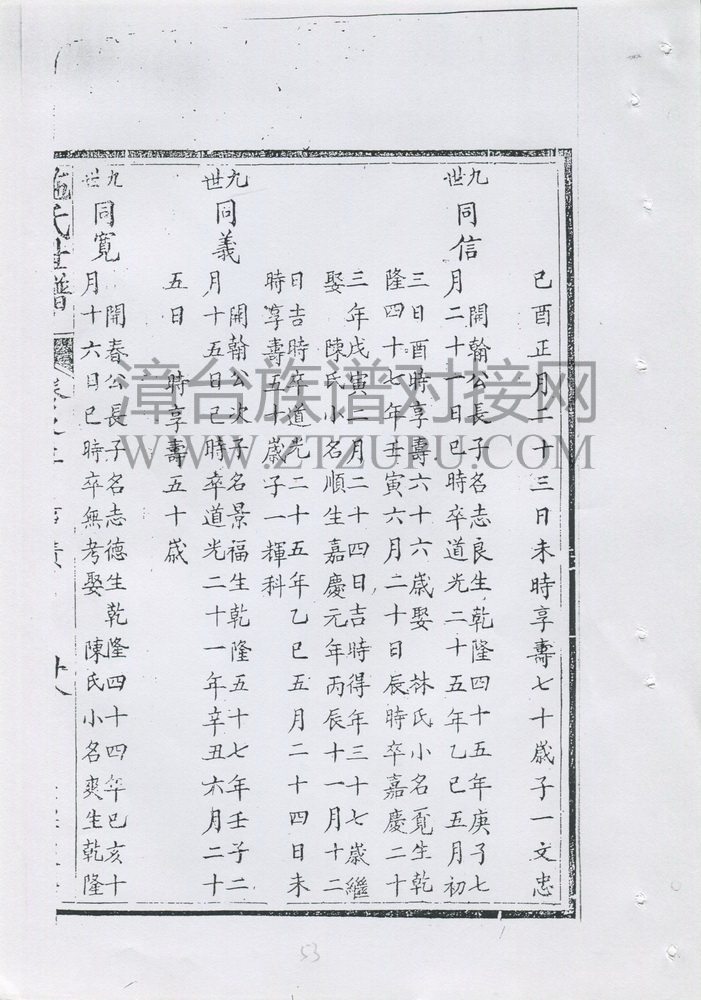 己酉正月二十三日未時享壽七十歲子一文忠
九世 同信
開翰公長子名志良生乾隆四十五年庚子七
月二十一日巳時卒道光二十五年乙巳五月初
三日酉時享壽六十六歲娶 林氏小名覔生乾
隆四十七年壬寅六月二十日辰時卒嘉慶二十
三年戊寅二月二十四日吉時得年三十七歲繼
娶 陳氏小名順生嘉慶元年丙辰十一月十二
日吉時卒道光二十五年乙巳五月二十四日未
時享壽五十歲子一輝科
九世 同義
開翰公次子名景福生乾隆五十七年壬子二
月十五日己時卒道光二十一年辛丑六月二十
五日 時享壽五十歲
九世 同寬
開春公長子名志德生乾隆四十四年己亥十
月十六日巳時卒無考娶 陳氏小名爽生乾隆
施氏世譜
卷之
漳台族谱对接网
WWW.ZTZUPU.COM
53